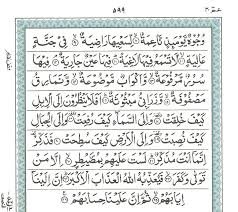 عم ٣٠ ٥٩٩
وُجُوهٌ يَوْمَئِذٍ نَاعِمَةٌ لِسَعْيِهَا رَاضِيَةٌ فِي جَنَّةٍ
عَالِيَةٍ لَا تَسْمَعُ فِيهَا لَاغِيَةً فِيهَا عَيْنٌ جَارِيَةٌ فِيهَا
سُرُرٌ مَرْفُوعَةٌ وَأَكْوَابٌ مَوْضُوعَةٌ وَنَمَارِقُ
مَصْفُوفَةٌ وَزَرَابِيُّ مَبْثُوثَةٌ أَفَلَا يَنْظُرُونَ إِلَى الْإِبِلِ
كَيْفَ خُلِقَتْ وَإِلَى السَّمَاءِ كَيْفَ رُفِعَتْ وَإِلَى الْجِبَالِ
كَيْفَ نُصِبَتْ وَإِلَى الْأَرْضِ كَيْفَ سُطِحَتْ فَذَكِّرْ
إِنَّمَا أَنْتَ مُذَكِّرٌ لَسْتَ عَلَيْهِمْ بِمُصَيْطِرٍ إِلَّا مَنْ
تَوَلَّى وَكَفَرَ فَيُعَذِّبُهُ اللَّهُ الْعَذَابَ الْأَكْبَرَ إِنَّ إِلَيْنَا
إِيَابَهُمْ ثُمَّ إِنَّ عَلَيْنَا حِسَابَهُمْ